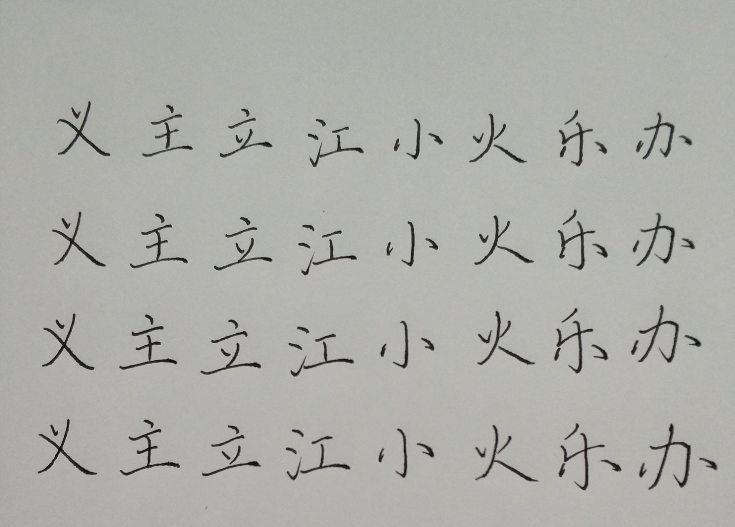 义主立江小火乐办
义主立江小火乐办
义主立江小火乐办
义主立江小火乐办